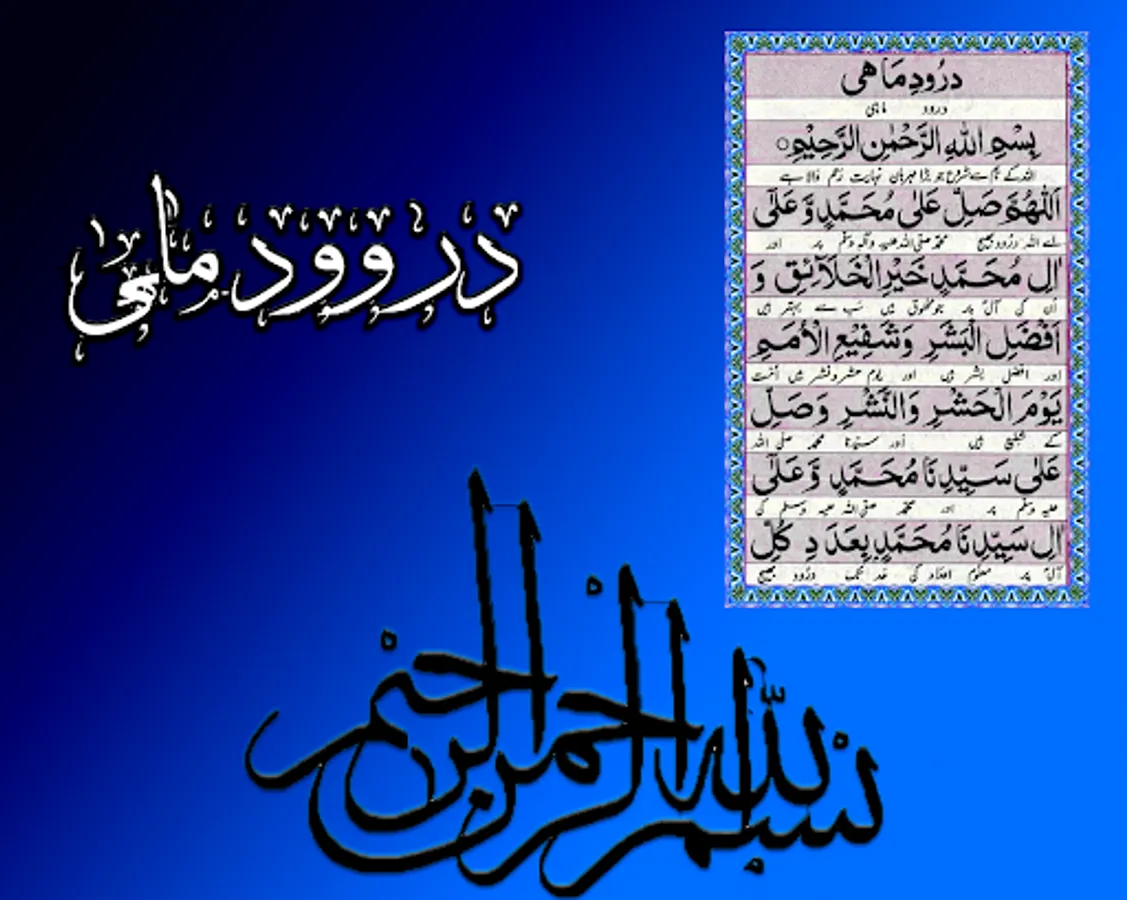 دروود ماہی
درُودِ مَاهی
درود ماہی
بِسْمِ اللهِ الرَّحْمٰنِ الرَّحِيْمِ○
اللہ کے نام سے شروع جو بڑا مہربان نہایت رحم والا ہے
اَللّٰهُمَّ صَلِّ عَلٰى مُحَمَّدٍ وَّعَلٰٓى
اے اللہ درُود بھیج محمدؐ صلی اللہ علیہ وآلہ وسلم پر اور
اٰلِ مُحَمَّدٍ خَيْرِ الْخَلَآئِقِ وَ
اُن کی آلؑ پر جو مخلوق میں سب سے بہتر ہیں
اَفْضَلِ الْبَشَرِ وَشَفِيْعِ الْاُمَمِ
اور افضل بشر ہیں اور یوم حشر و نشر میں اُمت
يَوْمَ الْحَشْرِ وَالنَّشْرِ وَصَلِّ
کے شفیع ہیں اور سیدنا محمد صلی اللہ
عَلٰى سَيِّدِنَا مُحَمَّدٍ وَّعَلٰٓى
علیہ وسلم پر اور محمدؐ صلی اللہ علیہ وسلم کی
اٰلِ سَيِّدِنَا مُحَمَّدٍ بِعَدَدِ كُلِّ
آلؑ پر معلوم اعداد کی حد تک درُود بھیج
بسم الله الرحمن الرحيم